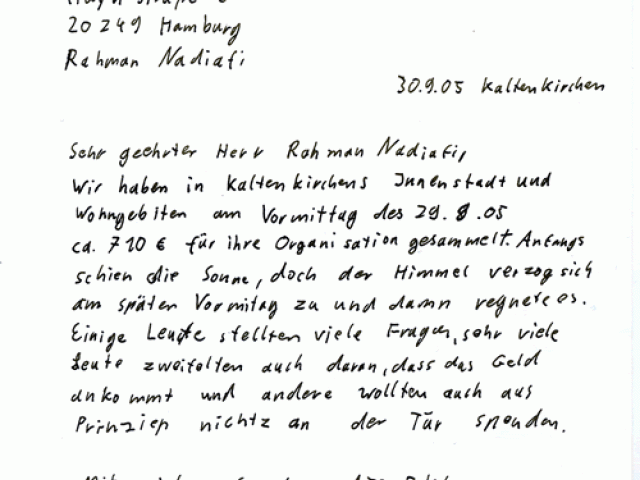 20249 Hamburg
Rahman Nadiafi
30.9.05 Kaltenkirchen
Sehr geehrter Herr Rahman Nadiafi,
Wir haben in Kaltenkirchens Innenstadt und
Wohngebiten am Vormittag des 29.8.05
ca. 710 € für ihre Organisation gesammelt. Anfangs
schien die Sonne, doch der Himmel verzog sich
am späten Vormitag zu und damn regnete es.
Einige Leute stellten viele Fragen, sehr viele
Leute zweifelten auch daran, dass das Geld
ankommt und andere wollten auch aus
Prinziep nichtz an der Tür spenden.